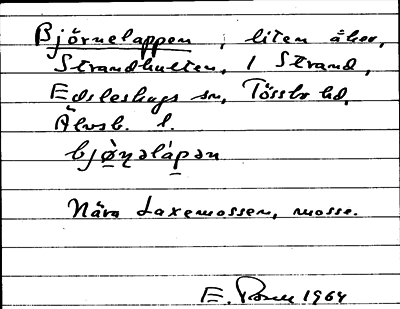 Björnelappen, liten åker,
Strandhulten, 1 Strand,
Edsleskogs sn, Tössbo hd,
Älvsb. l.
bjø̀ṇəlápən
Nära Laxemossen, mosse.
E. 1964